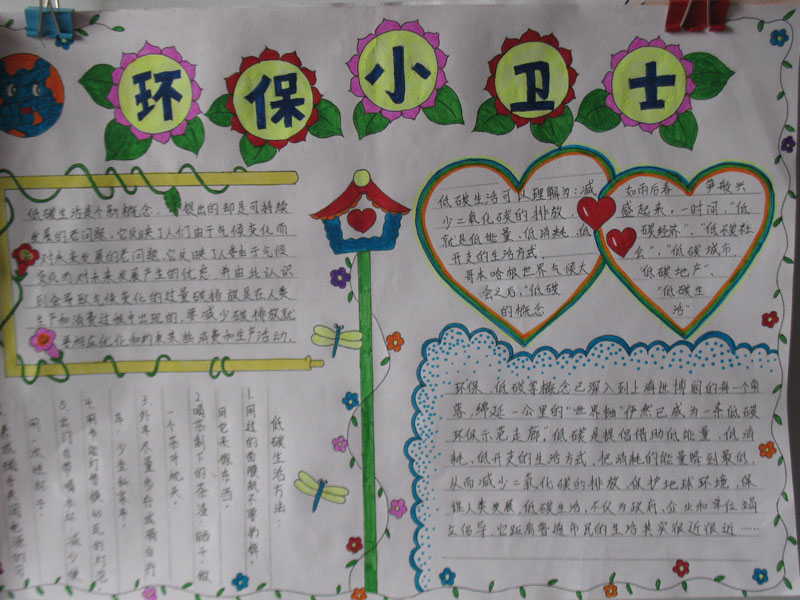 环保小卫士
低碳生活是个新概念,提出的却是可持续
发展的老问题,它反映了人们由于气候变化而
对未来发展的老问题,它反映了人类由于气候
变化而对未来发展产生的忧患,并由此认识
到会导致气候变化的过量碳排放是在人类
生产和消费过程中出现的,要减少碳排放就
要相应优化和约束某些消费和生产活动.
低碳生活可以理解为:减
少二氧化碳的排放,
就是低能量、低消耗、低
开支的生活方式.
哥本哈根世界气候大
会之后,"低碳
的概念
如雨后春 争般兴
盛起来,一时间,"低
碳经济"、"低碳社
会"、"低碳城市、
"低碳地产"、
"低碳生
活"
环保、低碳等概念已深入到上海世博园的每一个角
落,绵延一公里的"世界轴"俨然已成为一条低碳
环保示范走廊."低碳是提倡借助低能量、低消
耗、低开支的生活方式,把消耗的能量降到最低,
从而减少二氧化碳的排放,保护地球环境,保
证人类发展.低碳生活,不仅为政府、企业和单位竭
立倡导,它距离普通市民的生活其实很近很近……
低碳生活方法:
1.用过的面膜纸不要扔掉,
用它来擦东西.
2.喝茶剩下的茶渣,晒干,做
一个茶叶枕头.
3.外出尽量步行或骑自行
车,少坐私家车.
4.用节能灯替换
5.出门自带喝水杯,减少使
用一次性杯子.